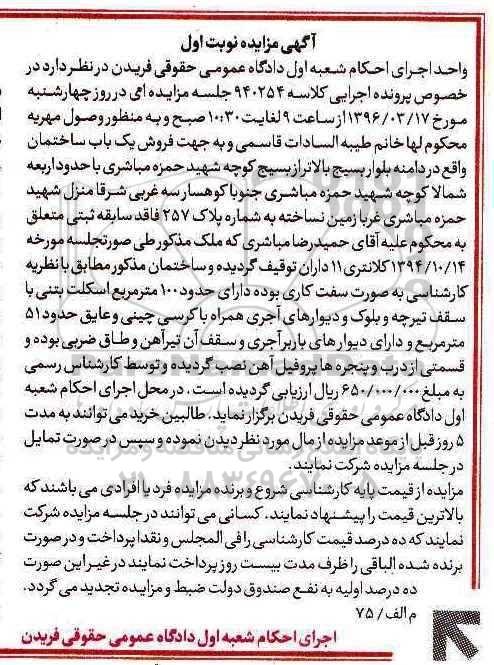 آگهی مزایده نوبت اول
واحد اجرای احکام شعبه اول دادگاه عمومی حقوقی فریدن در نظر دارد در
خصوص پرونده اجرایی کلاسه ۹۴۰۲۵۴ جلسه مزایده ای در روز چهارشنبه
مورخ ۱۳۹۶/۰۳/۱۷ از ساعت ۹ لغایت ۱۰:۳۰ صبح و به منظور وصول مهریه
محکوم لها خانم طیبه السادات قاسمی و به جهت فروش یک باب ساختمان
واقع در دامنه بلوار بسیج بالاتر از بسیج کوچه شهید حمزه مباشری با حدود اربعه
شمالا کوچه شهید حمزه مباشری جنوبا کوهسار سه غربی شرقا منزل شهید
حمزه مباشری غربا زمین نساخته به شماره پلاک ۲۵۷ فاقد سابقه ثبتی متعلق
به محکوم علیه آقای حمیدرضا مباشری که ملک مذکور طی صورتجلسه مورخه
۱۳۹۴/۱۰/۱۴ کلانتری ۱۱ داران توقیف گردیده و ساختمان مذکور مطابق با نظریه
کارشناسی به صورت سفت کاری بوده دارای حدود ۱۰۰ مترمربع اسکلت بتنی با
سقف تیرچه و بلوک و دیوارهای آجری همراه با کرسی چینی و عایق حدود ۵۱
مترمربع و دارای دیوار های باربر آجری و سقف آن تیرآهن و طاق ضربی بوده و
قسمتی از درب و پنجره ها پروفیل آهن نصب گردیده و توسط کارشناس رسمی
به مبلغ ۶۵۰/۰۰۰/۰۰۰ ریال ارزیابی گردیده است. در محل اجرای احکام شعبه
اول دادگاه عمومی حقوقی فریدن برگزار نماید. طالبین خرید می توانند به مدت
۵ روز قبل از موعد مزایده از مال مورد نظر دیدن نموده و سپس در صورت تمایل
در جلسه مزایده شرکت نمایند.
مزایده از قیمت پایه کارشناسی شروع و برنده مزایده فرد یا افرادی می باشند که
بالاترین قیمت را پیشنهاد نمایند. کسانی می توانند در جلسه مزایده شرکت
نمایند که ده درصد قیمت کارشناسی را فی المجلس و نقدا پرداخت و در صورت
برنده شده الباقی را ظرف مدت بیست روز پرداخت نمایند در غیر این صورت
ده درصد اولیه به نفع صندوق دولت ضبط و مزایده تجدید می گردد.
م الف/ ۷۵
اجرای احکام شعبه اول دادگاه عمومی حقوقی فریدن